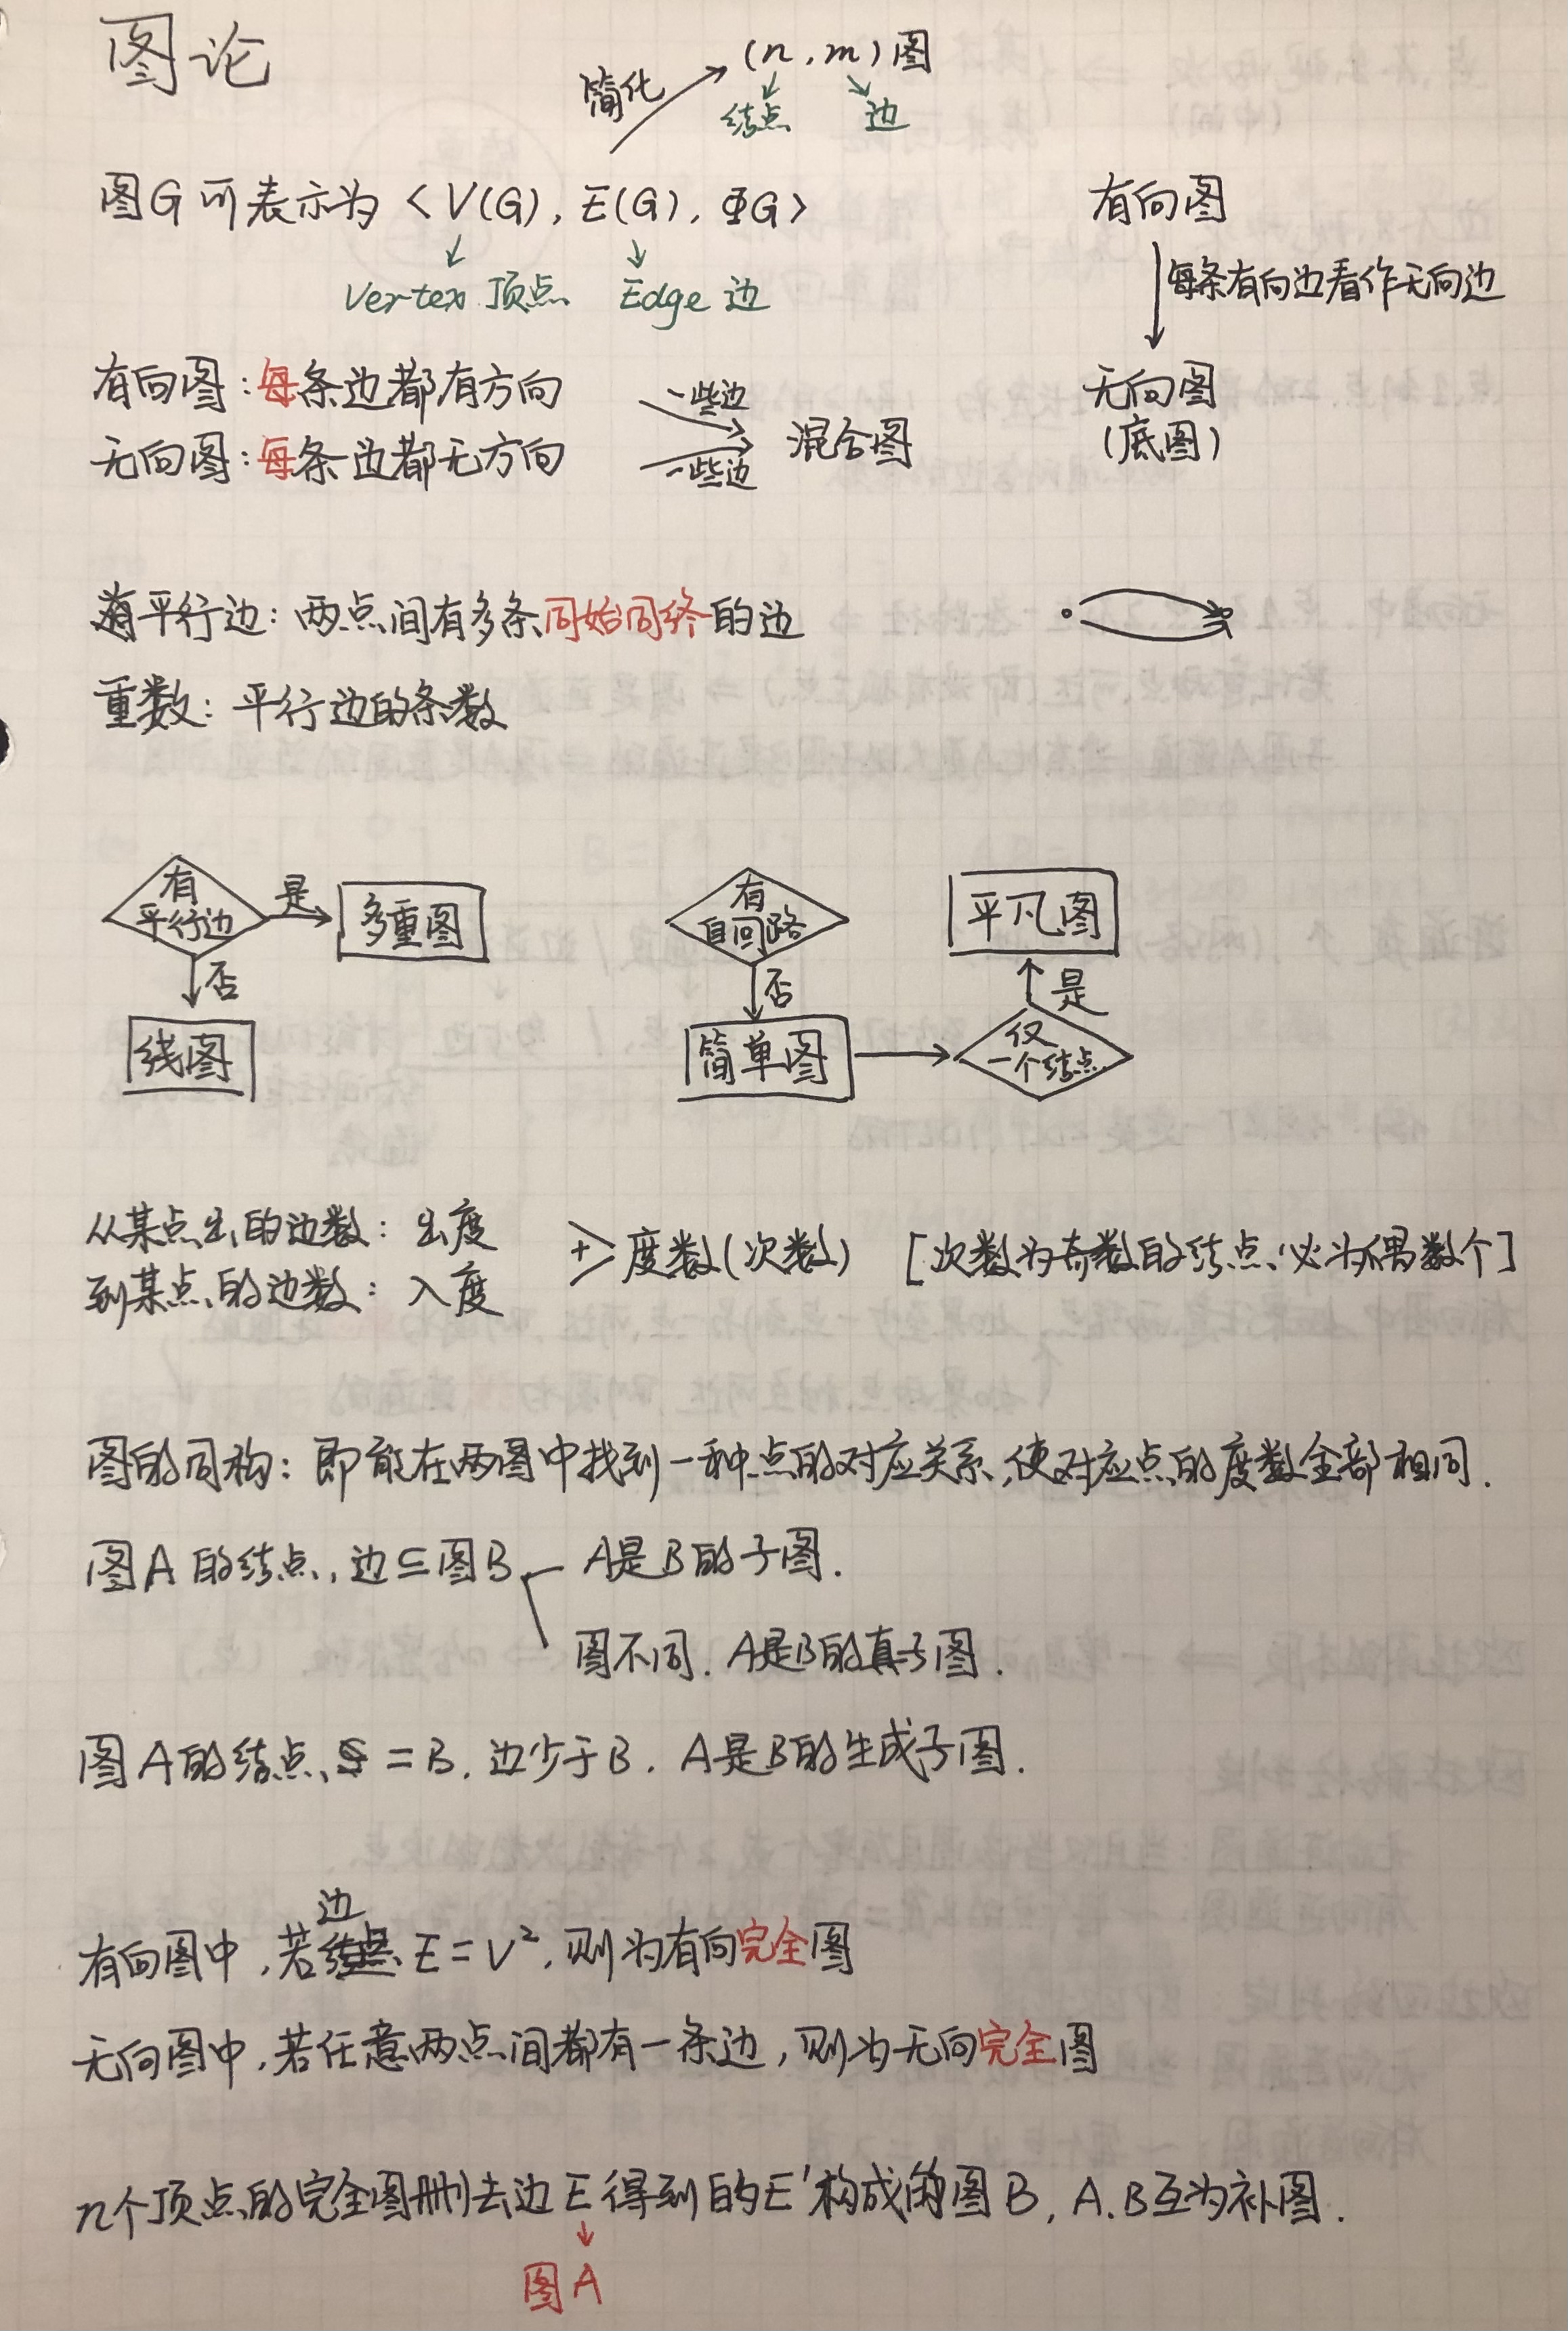 图论
简化 (n, m)图
结点 边
图G可表示为 <V(G), E(G), ΦG>
Vertex 顶点 Edge 边
有向图
每条有向边看作无向边
无向图
(底图)
有向图:每条边都有方向
无向图:每条边都无方向
一些边
一些边
混合图
有平行边:两点间有多条同始同终的边
重数:平行边的条数
有
平行边
是
多重图
否
线图
有
自回路
否
简单图
仅
一个结点
是
平凡图
从某点出的边数:出度
到某点的边数:入度
+ 度数(次数) [次数为奇数的结点必为偶数个]
图的同构:即能在两图中找到一种点的对应关系,使对应点的度数全部相同.
图A的结点,边⊆图B A是B的子图.
图不同.A是B的真子图.
图A的结点=B,边少于B.A是B的生成子图.
边
有向图中,若 E=V²,则为有向完全图
无向图中,若任意两点间都有一条边,则为无向完全图
n个顶点的完全图删去边E得到的E'构成的图B,A.B互为补图.
图A